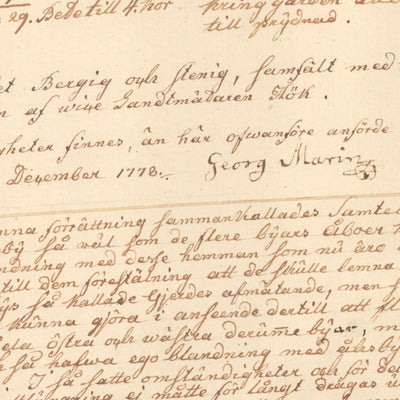 29. Bete till 4. hor kring gården
till prydnad.
et Bergig och stenig, samfält med
n af wice Landtmätaren Höök.
gheter finnes, än här ofwanföre anförde
December 1778. Georg Marin
nna förrättning sammankallades samtel
by så wäl som de flere byars åboer
ndning med desse hemman som nu äro
till dem föreställning att de skulle lemna
ys så kallade Gierdes afmätande, men
kunna gjöra i anseende dertill att
östra och wästra derume byar, m
så hafwa ego blandning med åhsby
I så fatte omständigheter och för de
ei måtte för långt dragas